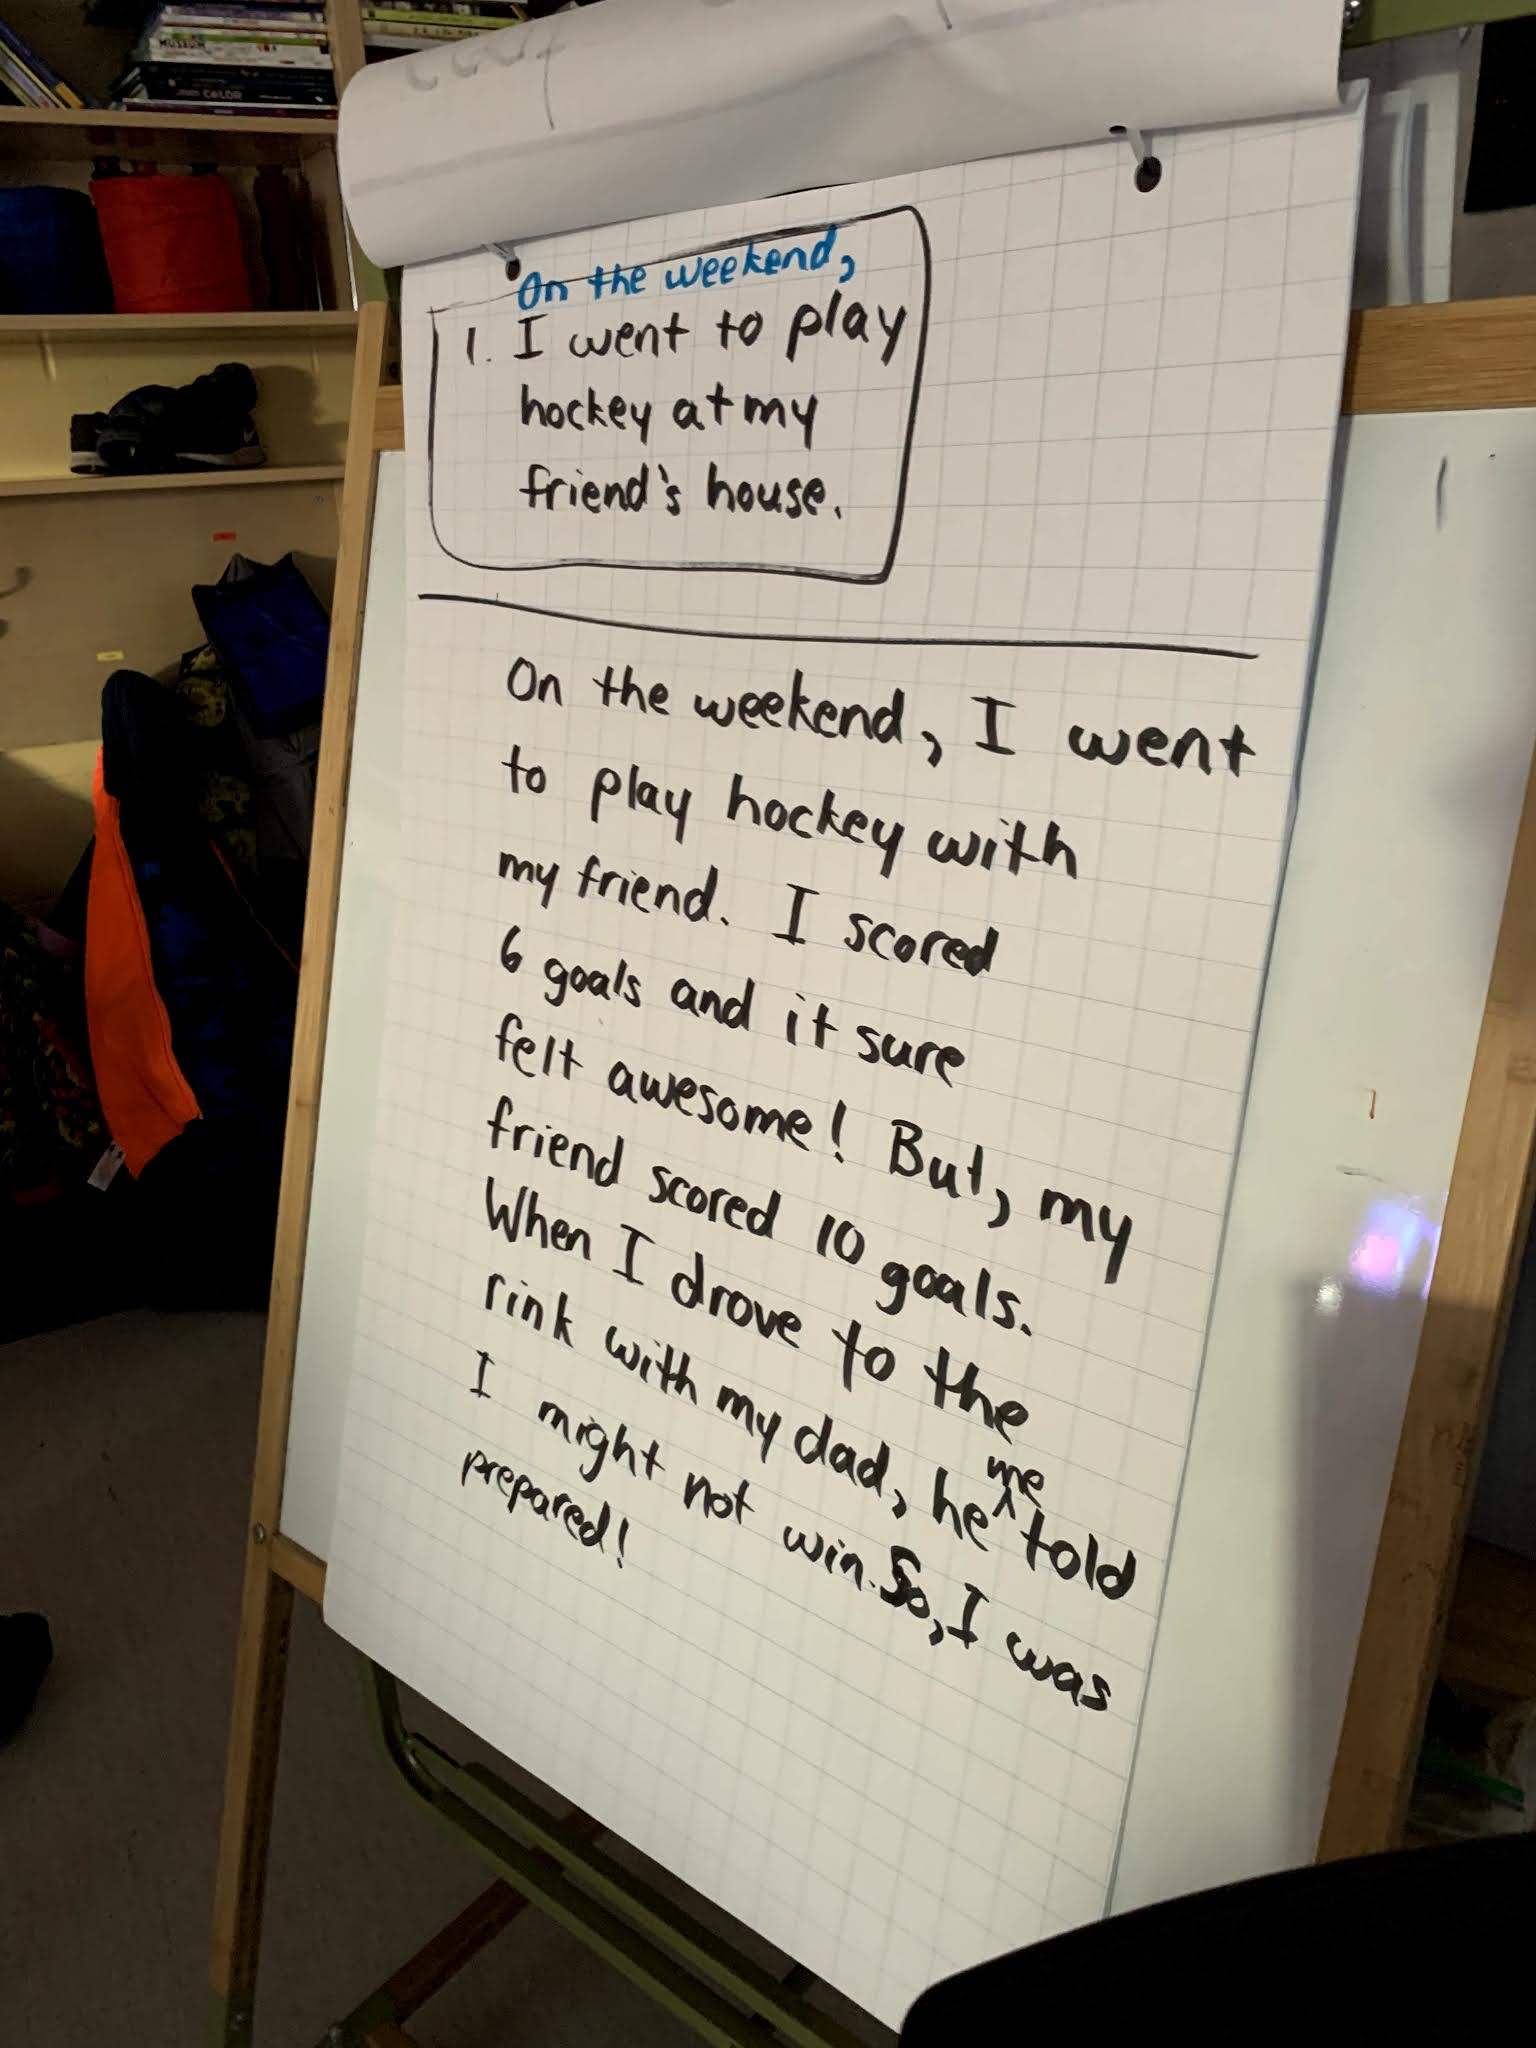 MUSEUM
COLOR
On the weekend,
1. I went to play
hockey at my
friend's house.
On the weekend, I went
to play hockey with
my friend. I scored
6 goals and it sure
felt awesome! But, my
friend scored 10 goals.
When I drove to the
rink with my dad, he me told
I might not win. So, I was
prepared!